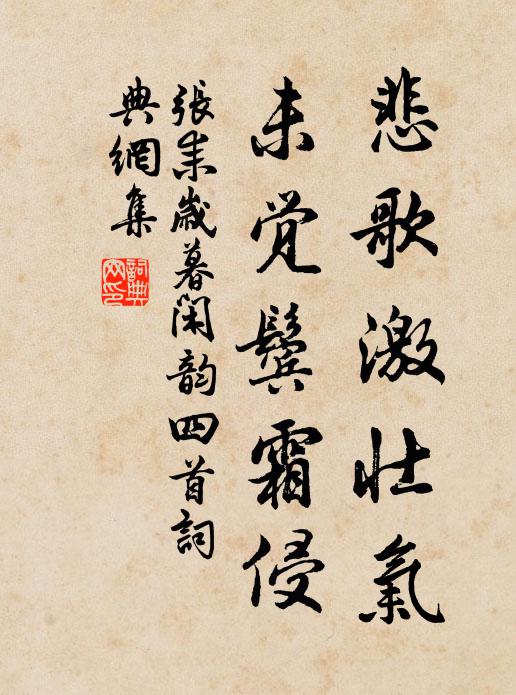 悲歌激壮氣
未覚鬓霜侵
張耒歲暮閑韵四首詞
典網集
詞典
网印